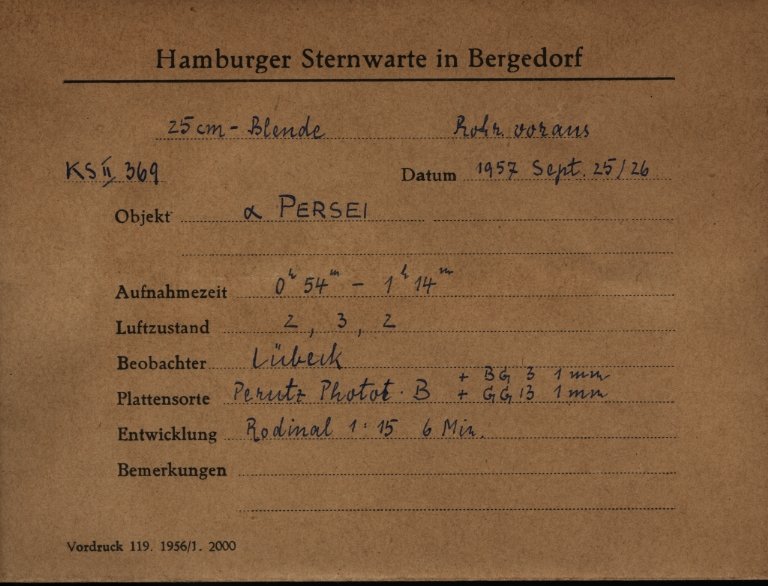 Hamburger Sternwarte in Bergedorf
25 cm - Blende Rohr voraus
KS II 369 Datum 1957 Sept. 25/26
Objekt α PERSEI
Aufnahmezeit 0h 54m - 1h 14m
Luftzustand 2, 3, 2
Beobachter Lübeck
+ BG 3 1 mm
Plattensorte Perutz Photot. B + GG 13 1 mm
Entwicklung Rodinal 1:15 6 Min.
Bemerkungen
Vordruck 119. 1956/1. 2000